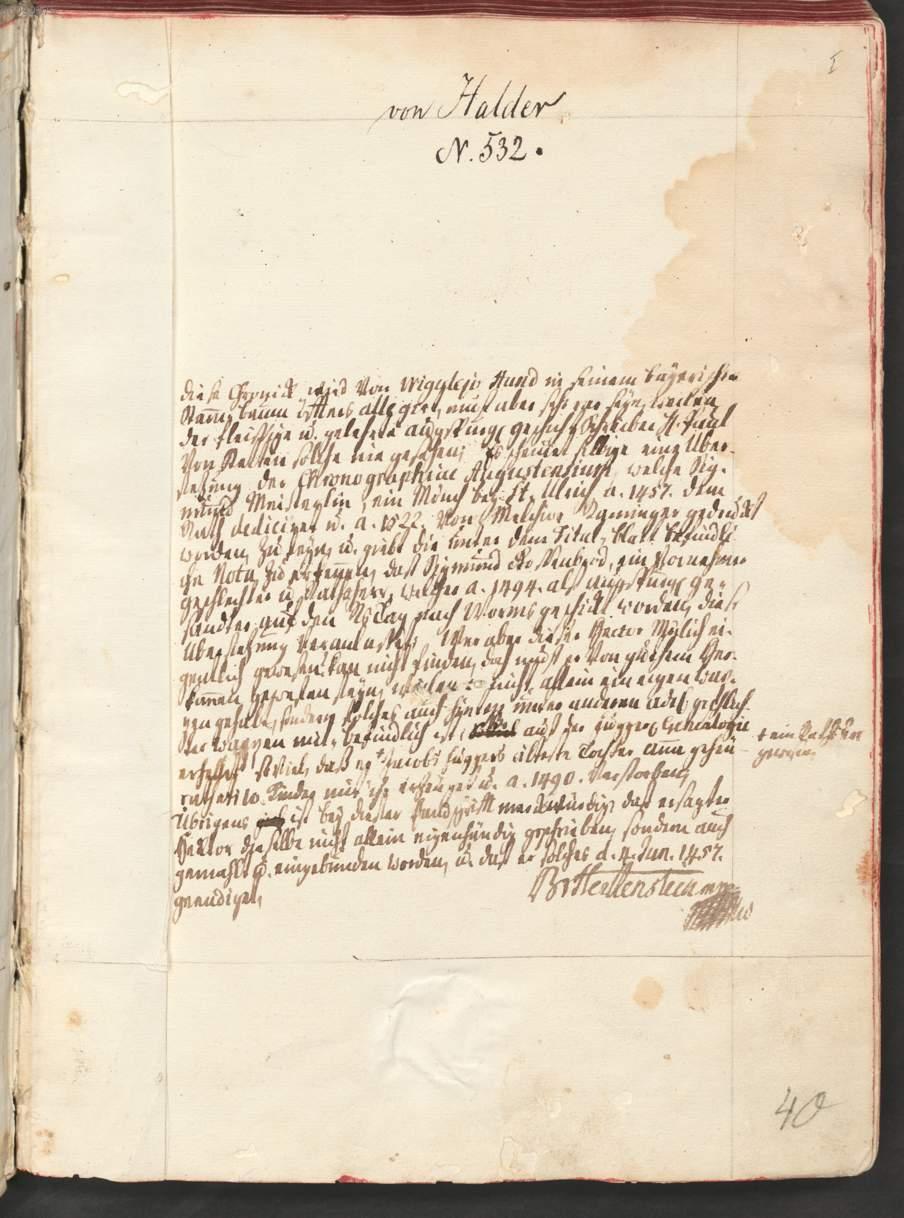 I
von Halder
N. 532.
diese Chronick wird von Wiguleio Hund in seinem bayerischen
Stammbaum öffters allegirt, muß aber sehr rar seyn,
der fleissige u. gelehrte augspurg. geschicht Schreiber H. Paul
von Stetten solche nie gesehen; Es scheinet selbige eine Über-
setzung der Chronographiae Augustensium, welche Sig-
mund Meisterlin, ein Mönch bey St. Ulrich a. 1457. dem
Rath dediciret u. a. 1522. von Melchior Ramminger gedruckt
worden, zu seyn, u. giebt die unter dem Titul-blatt befindli-
che Nota zu erkennen, daß Sigmund Gossenbrod, ein vornehmer
geschlechter u. Rathsherr, welcher a. 1494. als augspurg. Ge-
sandter auf den Rstag nach Worms geschickt worden, diese
Übersetzung veranlasset, Wer aber dieser Hector Mülich ei-
gentlich gewesen kan nicht finden, doch muß er von gutem Her-
kommen gewesen seyn, weilen nicht allein ein eigen Wap-
pen geführt, sondern solches auch hinten unter anderen adel. geschlech-
ter wappen mit befindlich ist, aus der Fugger. Genealogie
erhellet so viel, daß er Jacobs Fuggers älteste Tochter Anna geheu-
rathet 10. Kinder mit ihr erzeuget u. a. 1490. verstorben,
+ ein Rathsherr
gewesen
übrigens ist bey dieser Handschrifft merckwürdig, daß ersagter
Hector dieselbe nicht allein eigenhändig geschrieben, sondern auch
gemahlt u. eingebunden worden, u. daß er solches d. 4. Jun. 1457.
geendiget,
40